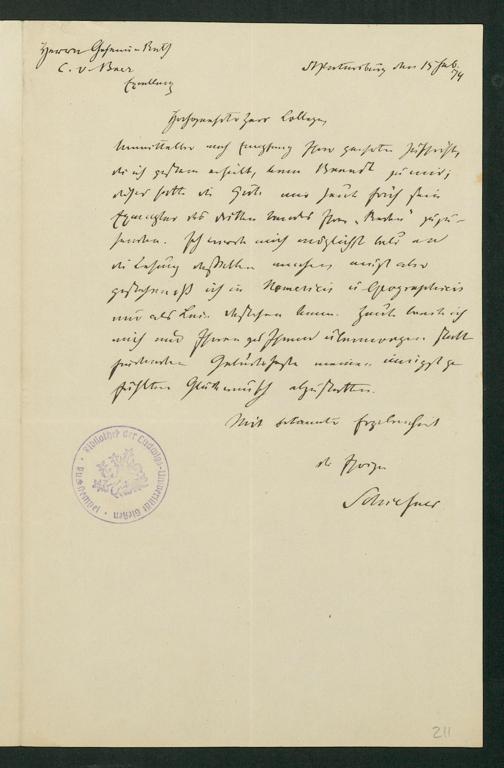 Herrn Geheimen Rath
C. v. Baer
Excellenz
St Petersburg den 15 Feb.
74
Hochgeehrter Herr College,
Unmittelbar nach Empfang Ihrer geehrten Zuschrift,
die ich gestern erhielt, kam Brandt zu mir;
dieser hatte die Güte mir heut früh sein
Exemplar des dritten Bandes Ihrer „Reden“ zuzu-
senden. Ich werde mich möglichst bald an
die Lesung desselben machen, muss aber
gestehen dass ich in Homericis u. Geographicis
nur als Laie dastehen kann. Heute beeile ich
mich nur Ihnen zu Ihrem übermorgen statt
findenden Geburtsfeste meinen innigst ge
fühlten Glückwunsch abzustatten.
Mit bekannter Ergebenheit
der Ihrige
Schiefner
Bibliothek der Ludwigs-Universität Gießen
211